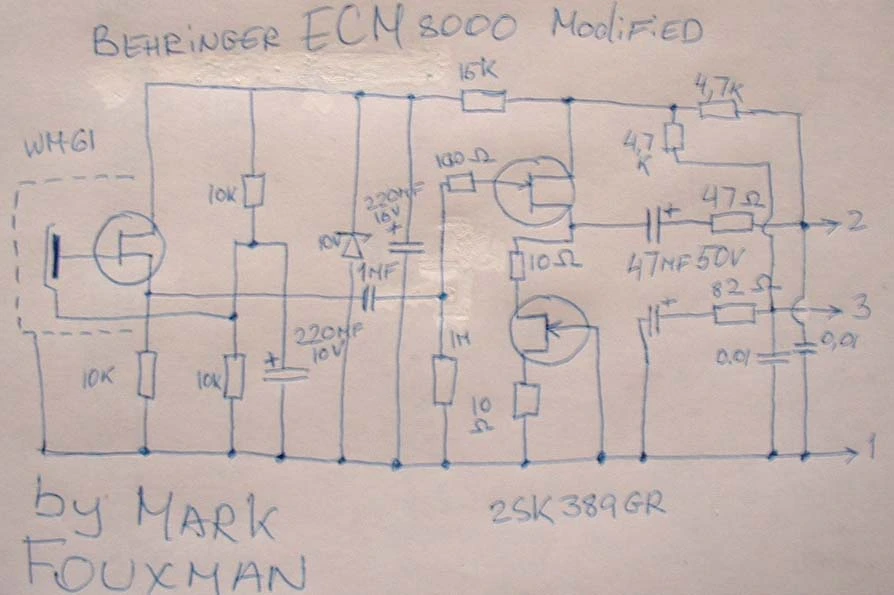 BEHRINGER ECM 8000 MODIFIED
WM-61
15K
4,7K
4,7
K
100Ω
10K
220MF
16V
+
10V
1MF
+
47Ω
2
47MF 50V
10Ω
+
82Ω
3
220MF
10V
+
1M
0.01
0,01
10K
10K
10
Ω
1
by MARK
FOUXMAN
2SK389GR